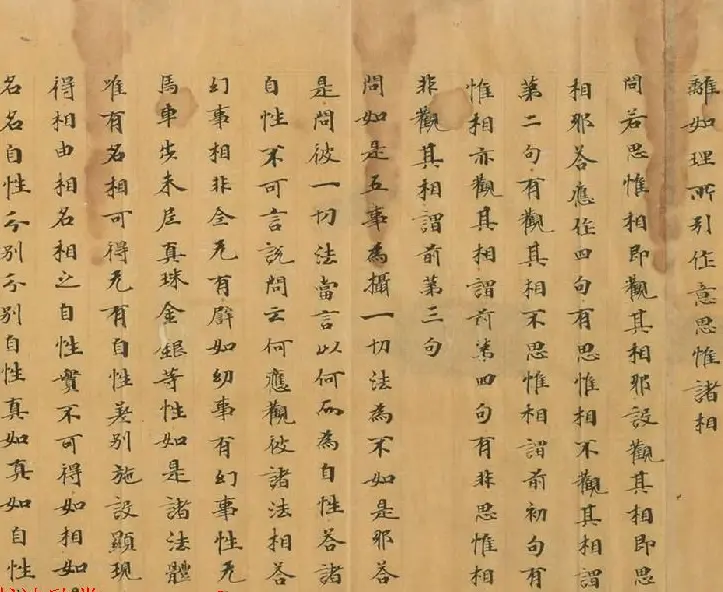 離如理所引作意思惟諸相
問若思惟相即觀其相耶設觀其相即思
相耶荅應作四句有思惟相不觀其相謂
第二句有觀其相不思惟相謂前初句有
惟相亦觀其相謂前第四句有非思惟相
非觀其相謂前第三句
問如是五事為攝一切法為不如是耶荅
是問彼一切法當言以何而為自性荅諸
自性不可言說問云何應觀彼諸法相荅
幻事相非全无有譬如幻事有幻事性无
馬車步末尼真珠金銀等性如是諸法體
唯有名相可得无有自性差別施設顯現
得相由相名相之自性實不可得如相如
名名自性分別分別自性真如真如自性